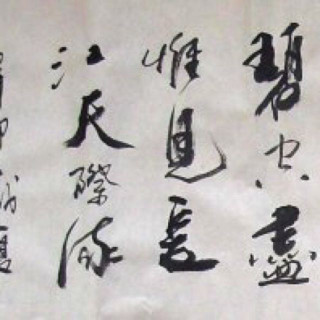 碧空盡
惟見長
江天際流